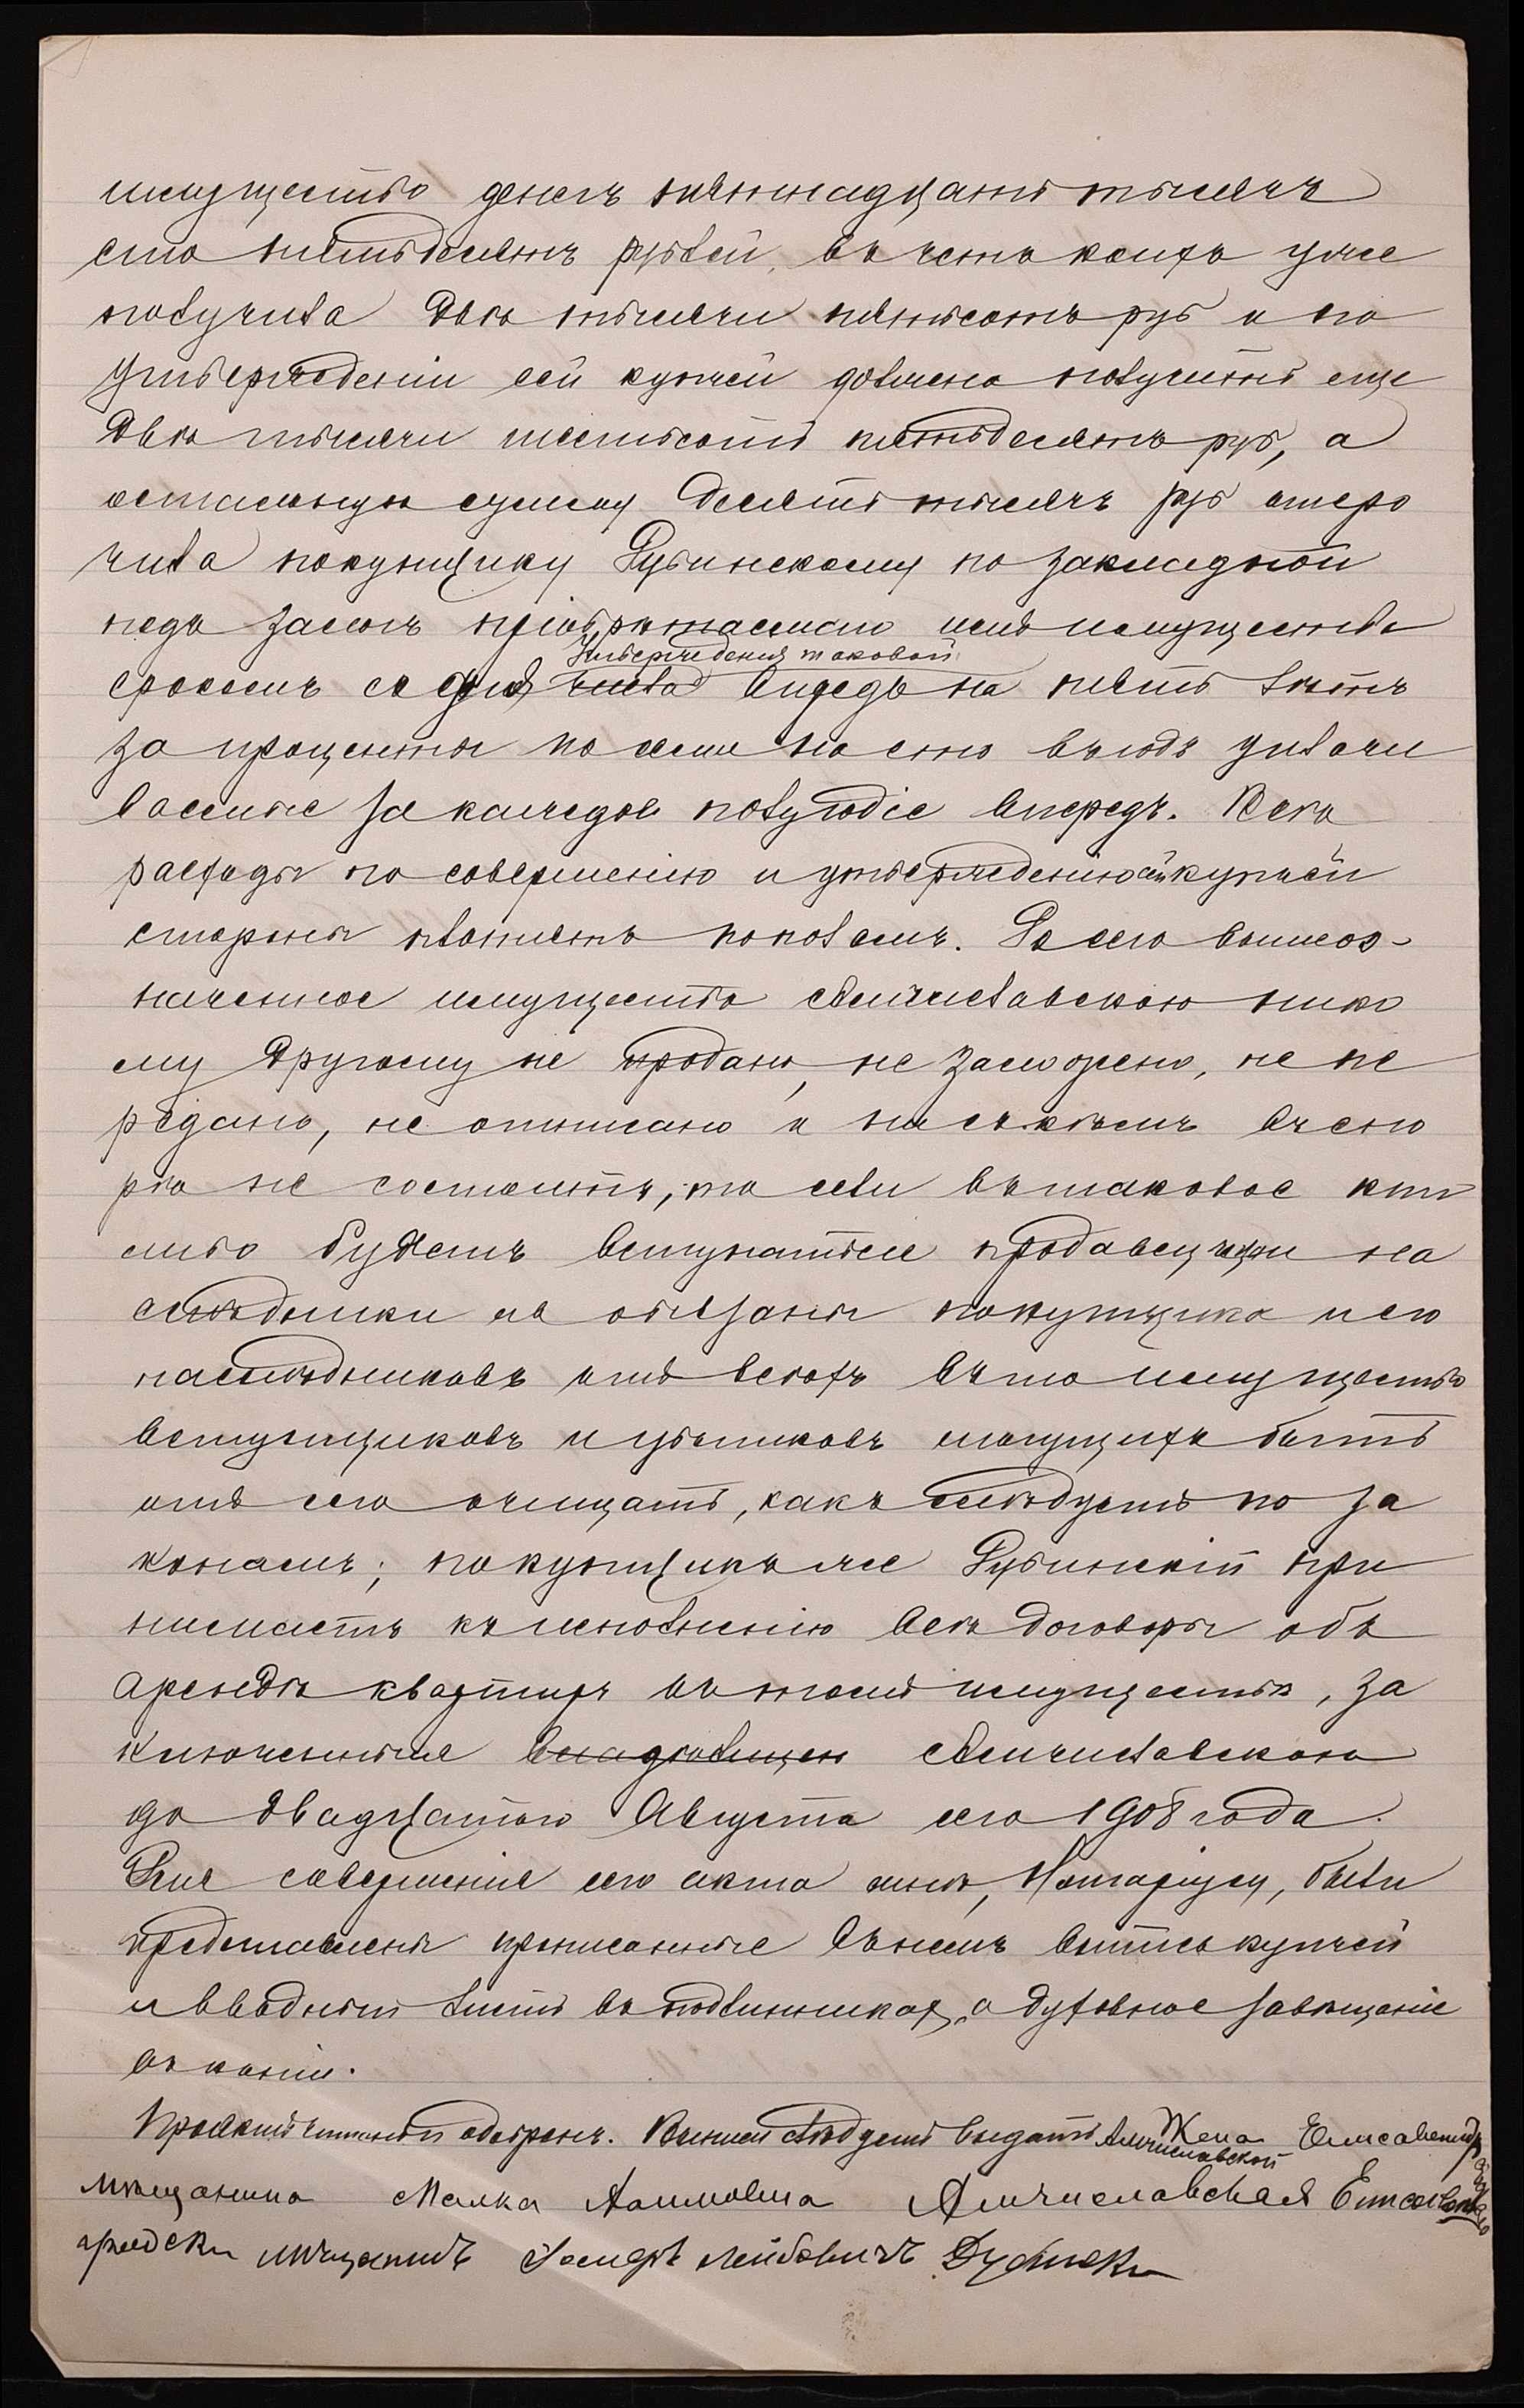 имущество денегъ пятнадцать тысячъ
сто пятьдесятъ рублей, въ счетъ коихъ уже
получила Двѣ тысячи пятьсотъ руб и по
утвержденіи сей купчей должна получить еще
Двѣ тысячи шестьсотъ пятьдесятъ руб, а
остальную сумму Десять тысячъ руб отсро
чила покупщику Дубинскому по закладной
подъ залогъ пріобрѣтаемаго имъ имущества
утвержденія таковой
срокомъ со дня числа впредь на пять лѣтъ
за проценты по семи на сто въ годъ уплачи
ваемые за каждое полугодіе впередъ. Всѣ
расходы по совершенію и утвержденію сей купчей
стороны платятъ пополамъ. До сего вышеоз-
наченное имущество Амчиславскою нико
му Другому не продано, не заложено, не пе
редано, не отписано и ни съ кѣмъ въ спо
рѣ не состоитъ, то если въ таковое кто
либо будетъ вступаться продавщица и на
слѣдники ея обязаны покупщика и его
наслѣдниковъ отъ всѣхъ въ то имущество
вступщиковъ и убытковъ могущихъ быть
отъ сего очищать, какъ слѣдуетъ по за
конамъ; покупщикъ же Дубинскій при
нимаетъ къ исполненію всѣ договоры объ
арендѣ квартиръ въ томъ имуществѣ, за
ключенные владѣлицею Амчиславскою
до двадцатаго Августа сего 1908 года.
Для совершенія сего акта мнѣ, Нотаріусу, были
представлены прописанные въ немъ выпись купчей
и вводный листъ въ подлинникахъ, а духовное завѣщаніе
въ копіи.
Проектъ читанъ и одобренъ. Выпись слѣдуетъ выдать Амчиславской Жена Елисаветгр
мѣщанина Малка Амчиславская Елисавет
градскій мѣщанинъ Лейбовичъ Дубинскій